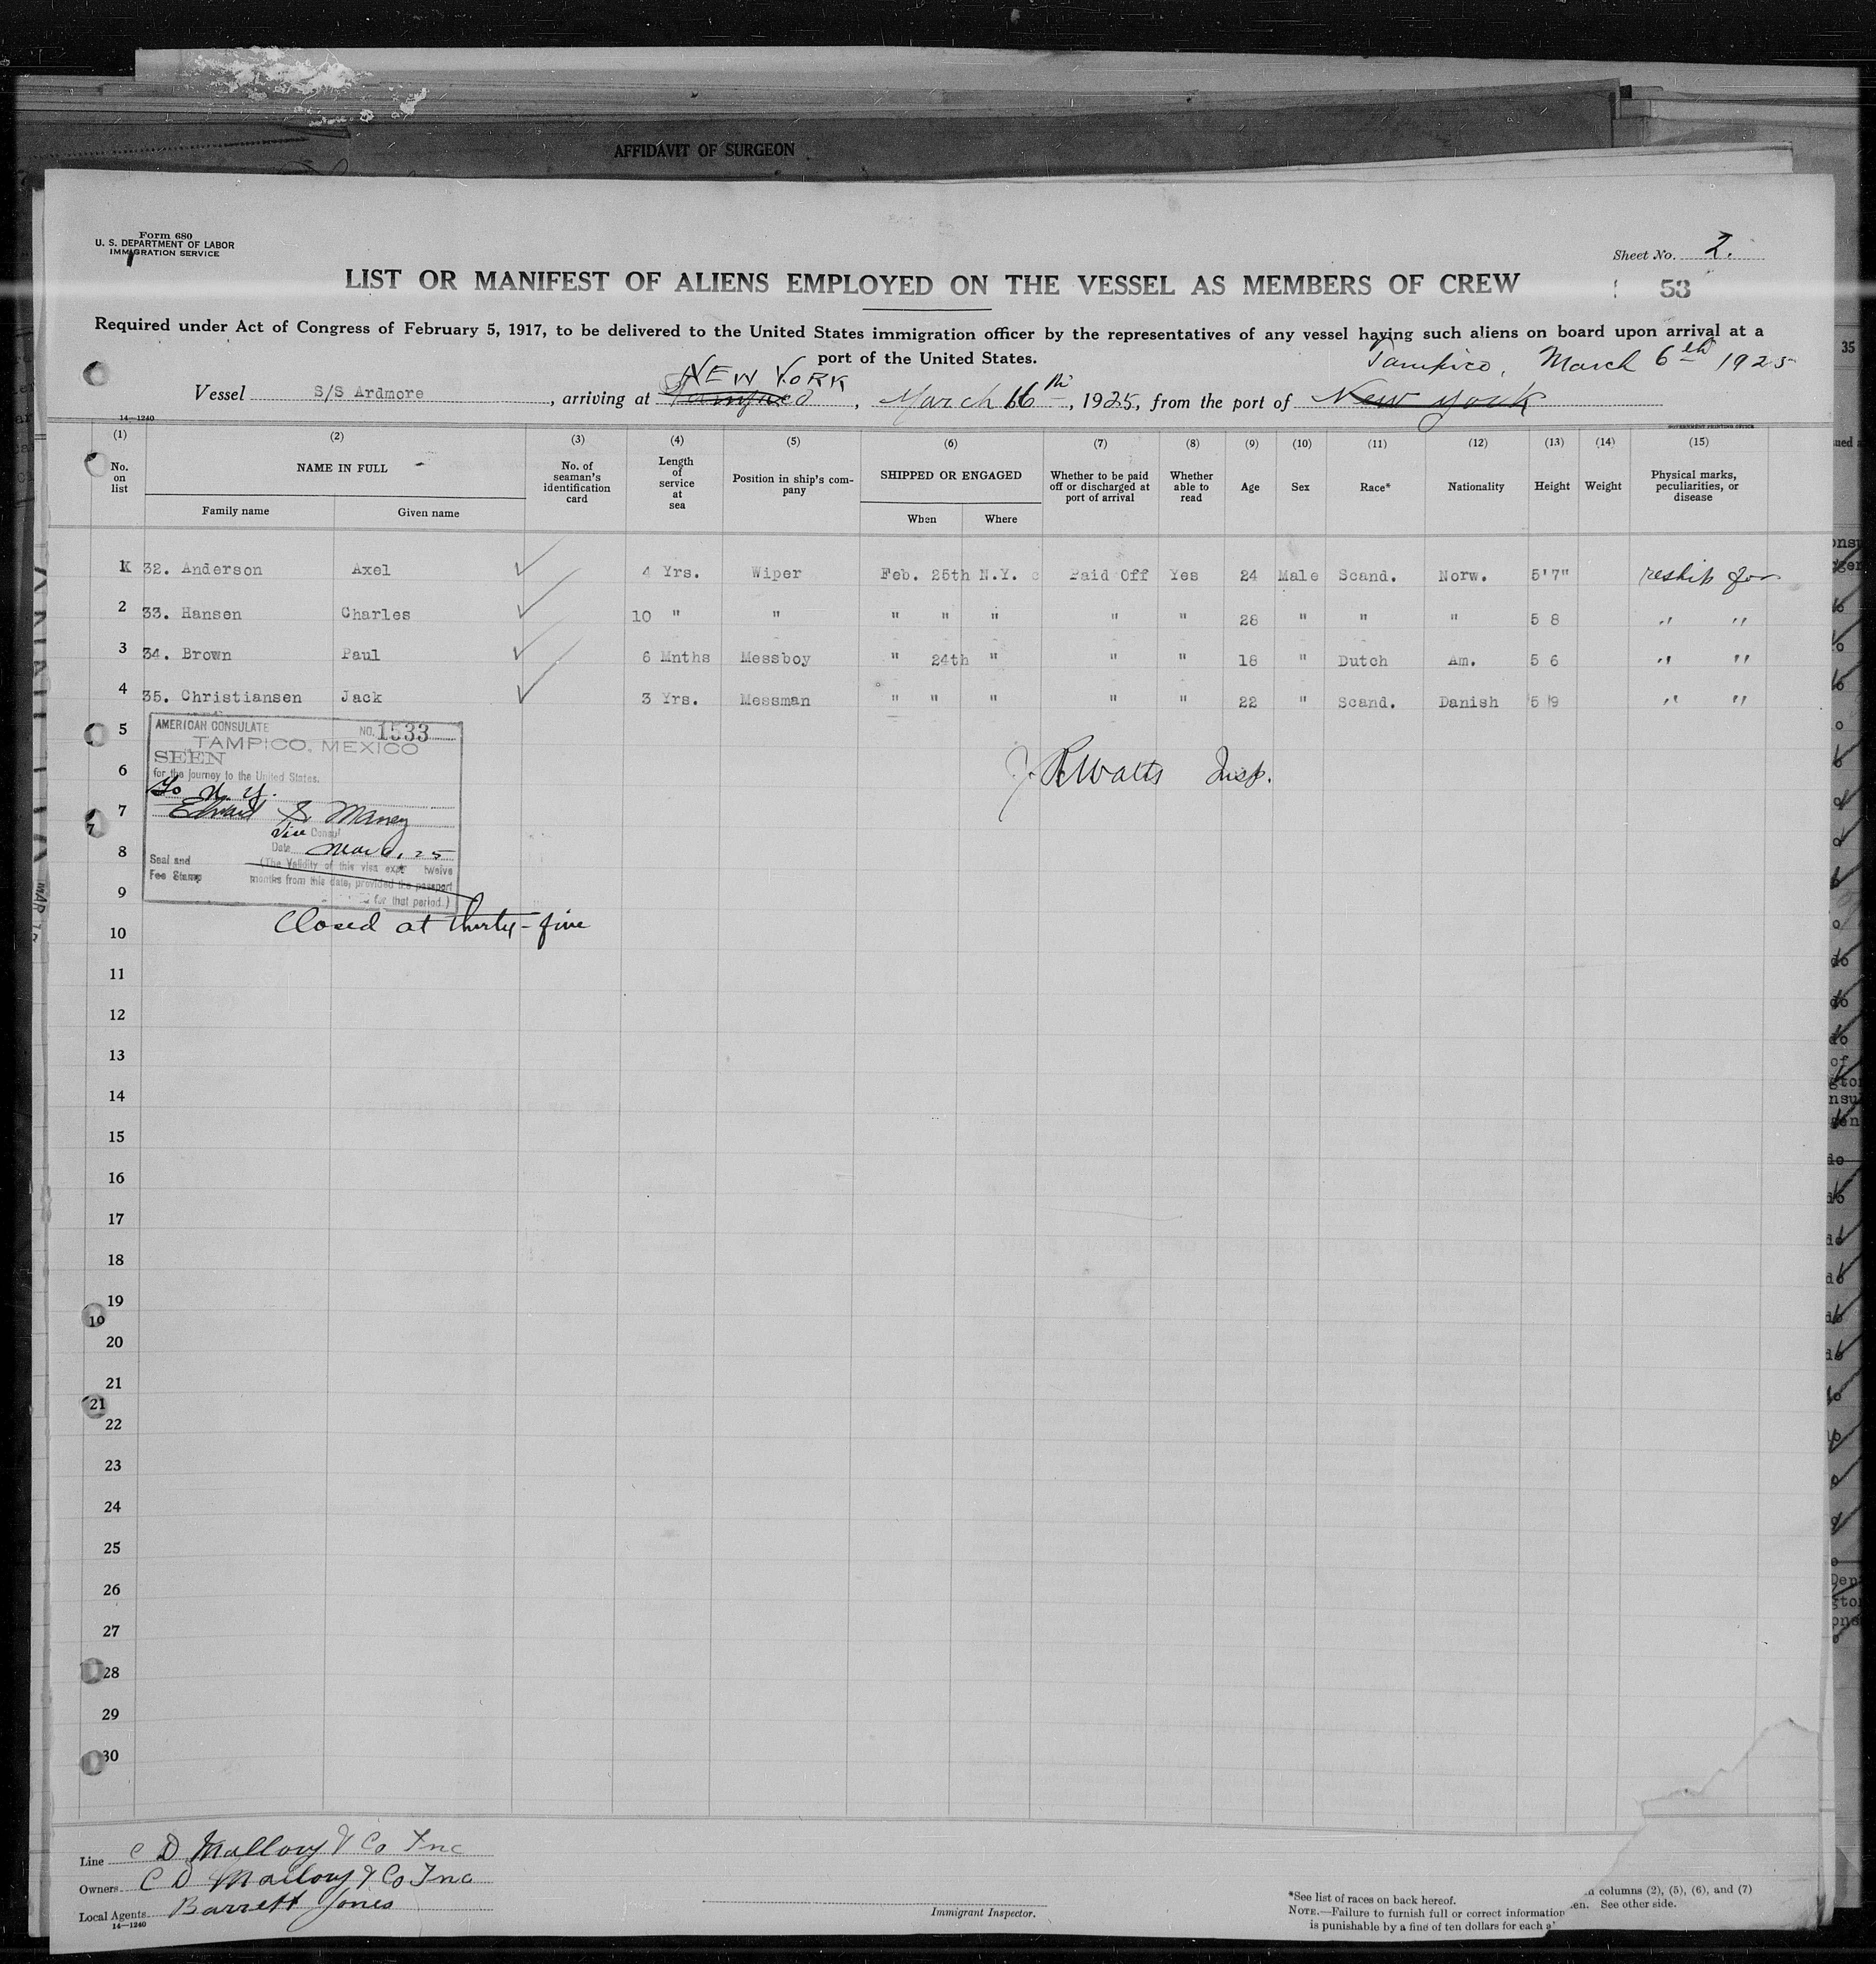 AFFIDAVIT OF SURGEON
Form 680
U. S. DEPARTMENT OF LABOR
IMMIGRATION SERVICE
Sheet No. 2.
LIST OR MANIFEST OF ALIENS EMPLOYED ON THE VESSEL AS MEMBERS OF CREW
53
Required under Act of Congress of February 5, 1917, to be delivered to the United States immigration officer by the representatives of any vessel having such aliens on board upon arrival at a
port of the United States.
Tampico, March 6th 1925
NEW YORK
Vessel S/S Ardmore, arriving at Tampico, March 16th, 1925, from the port of New York
14—1240
GOVERNMENT PRINTING OFFICE
(1) (2) (3) (4) (5) (6) (7) (8) (9) (10) (11) (12) (13) (14) (15)
No. on list
NAME IN FULL
Family name Given name
No. of seaman's identification card
Length of service at sea
Position in ship's company
SHIPPED OR ENGAGED
When Where
Whether to be paid off or discharged at port of arrival
Whether able to read
Age
Sex
Race*
Nationality
Height
Weight
Physical marks, peculiarities, or disease
1 32. Anderson Axel 4 Yrs. Wiper Feb. 25th N.Y. c Paid Off Yes 24 Male Scand. Norw. 5'7" reship for
2 33. Hansen Charles 10 " " " " " " " 28 " " " 5 8 " "
3 34. Brown Paul 6 Mnths Messboy " 24th " " " 18 " Dutch Am. 5 6 " "
4 35. Christiansen Jack 3 Yrs. Messman " " " " " 22 " Scand. Danish 5 9 " "
5
6
7
8
9
10
11
12
13
14
15
16
17
18
19
20
21
22
23
24
25
26
27
28
29
30
AMERICAN CONSULATE NO. 1533
TAMPICO, MEXICO
SEEN
for the journey to the United States.
To N. Y.
Edward S. Maney
Vice Consul
Date Mar 6, 25
Seal and
Fee Stamp
(The Validity of this visa twelve
months from this date, provided the passport
for that period.)
Closed at thirty-five
Watts Insp.
Line C D Mallory & Co Inc
Owners C D Mallory & Co Inc
Local Agents Barrett Jones
14—1240
Immigrant Inspector.
*See list of races on back hereof.
NOTE.—Failure to furnish full or correct information columns (2), (5), (6), and (7)
is punishable by a fine of ten dollars for each See other side.